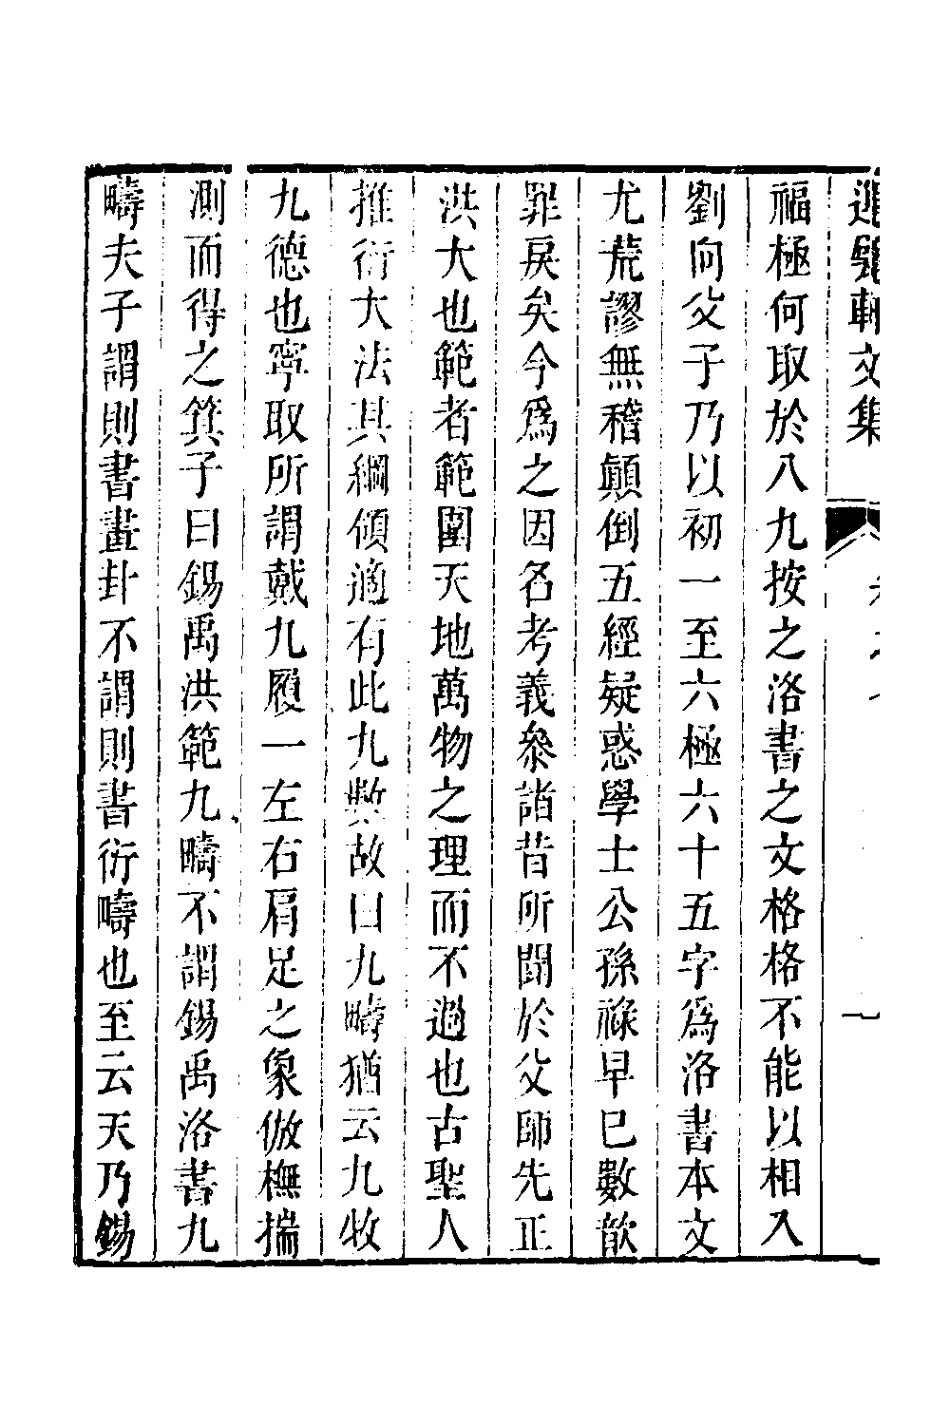 軒文集
福極何取於八九按之洛書之文格格不能以相入
劉向父子乃以初一至六極六十五字為洛書本文
尤荒謬無稽顛倒五經疑惑學士公孫祿早已數歆
罪戾矣今爲之因名考義叅諸昔所聞於父師先正
洪大也範者範圍天地萬物之理而不過也古聖人
推衍大法其綱領適有此九數故曰九疇猶云九牧
九德也寧取所謂戴九履一左右肩足之象倣橅揣
測而得之箕子曰錫禹洪範九疇不謂錫禹洛書九
疇夫子謂則書畫卦不謂則書衍疇也至云天乃錫